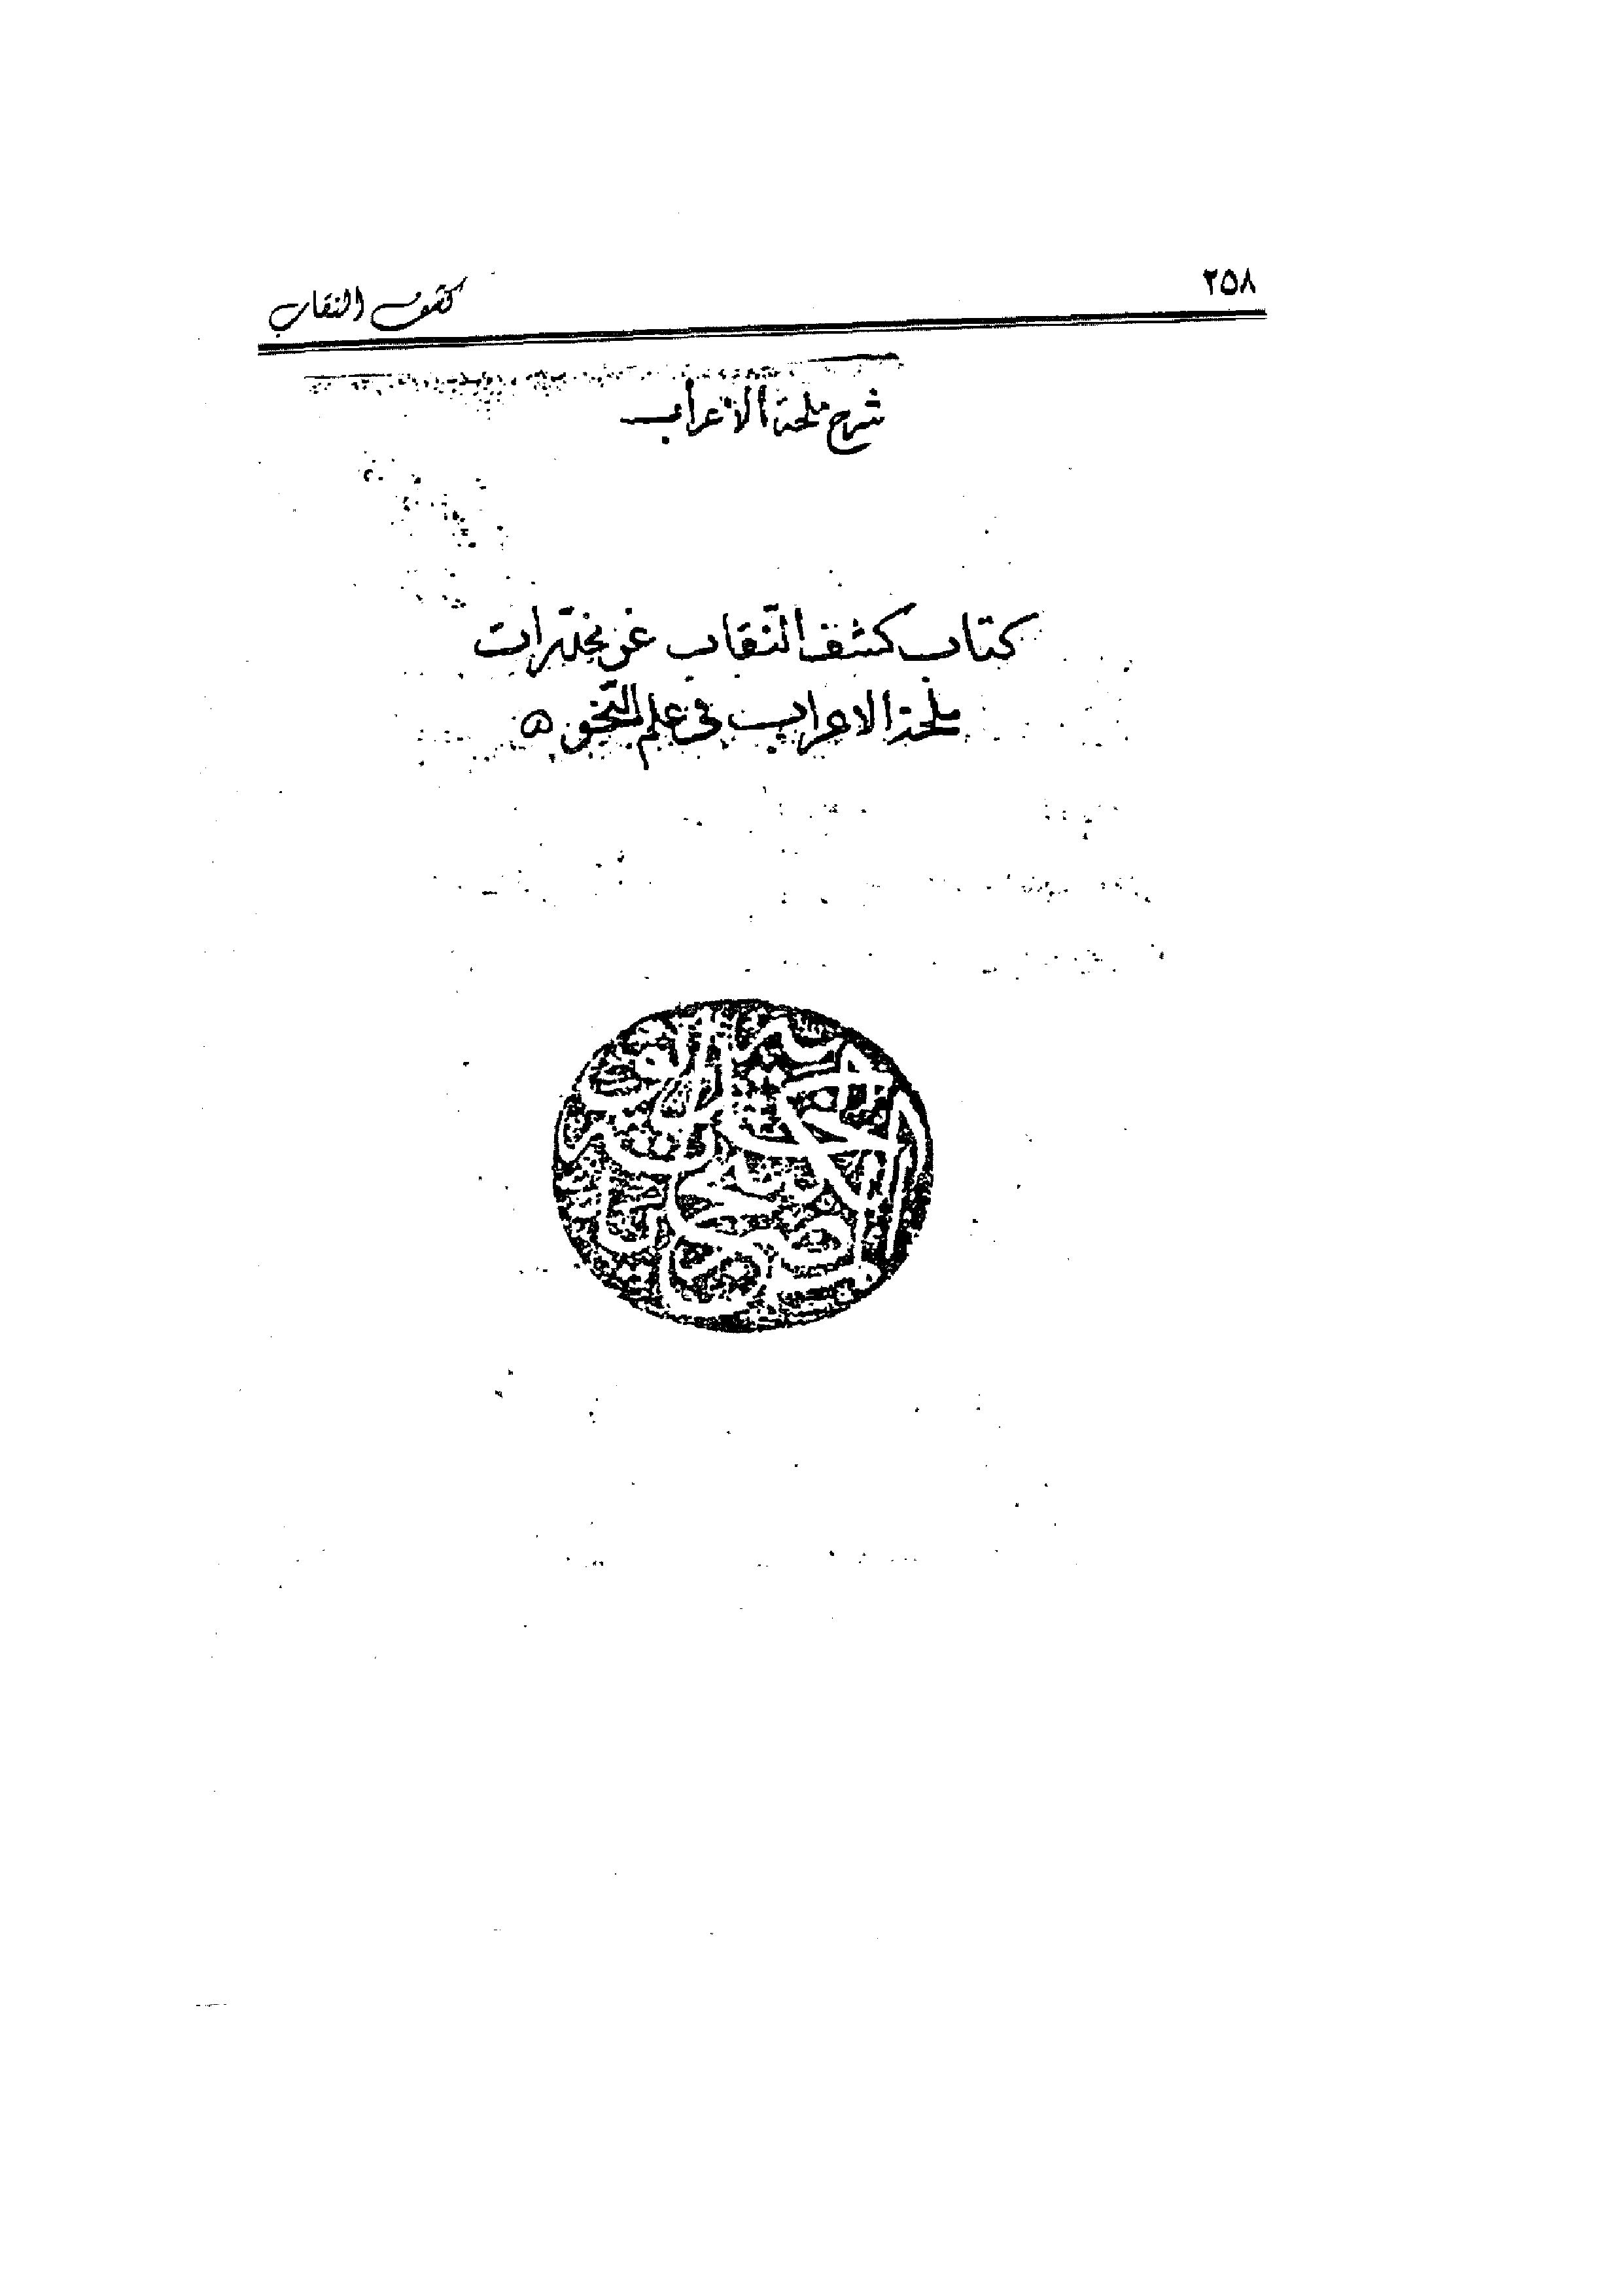 ٢٥٨
كشف النقاب
شرح ملحة الاعراب
كتاب كشف النقاب عن مخدرات
ملحة الاعراب في علم النحو